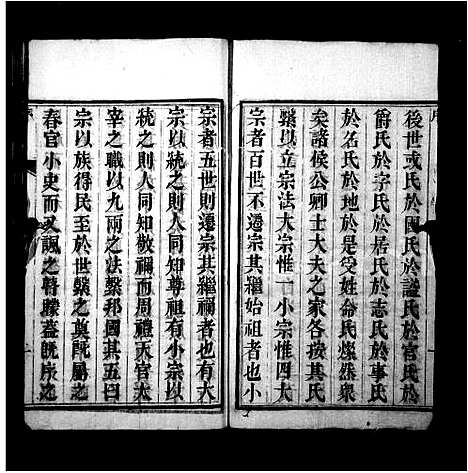 後世或氏於國氏於謚氏於官氏於
爵氏於字氏於居氏於志氏於事氏
於名氏於地於是受姓命氏燦然衆
矣諸侯公卿士大夫之家各按其氏
繫以立宗法大宗惟一小宗惟四大
宗者百世不遷宗其繼始祖者也小
宗者五世則遷宗其繼禰者也有大
宗以統之則人同知尊祖有小宗以
統之則人同知敬禰而周禮天官太
宰之職以九兩之法繫邦國其五曰
宗以族得民至於世繫之奠既屬之
春官小史而又諷之瞽矇蓋既序之